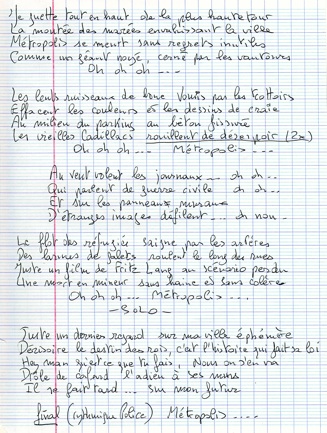 Je guette tout en haut de la plus haute tour
La montée des marées envahissant la ville
Métropolis se meurt sans regrets inutiles
Comme un géant noyé, cerné par les vautours
Oh oh oh ...
Les lents ruisseaux de boue vomis par les trottoirs
Effacent les couleurs et les dessins de craie
Au milieu du parking au béton fissuré
Les vieilles Cadillacs rouillent de désespoir (2x)
Oh oh oh ... Métropolis ....
Au vent volent les journaux ... oh oh..
Qui parlent de guerre civile oh oh..
Et sur les panneaux muraux
D'étranges images défilent ... oh non -
Le flot des réfugiés saigne par les artères
Des larmes de galets roulent le long des rues
Juste un film de Fritz Lang au scénario perdu
Une mort en mineur sans haine et sans colère
Oh oh oh ... Métropolis ...
- SOLO -
Juste un dernier regard sur ma ville éphémère
Dérisoire le destin des rois, c'est l'histoire qui fait sa loi
Hey man qu'est ce que tu fais, Nous on s'en va
Drôle de cafard l'adieu à ses murs
Il se fait tard ... sur mon futur
final (rythmique Police) Métropolis ....